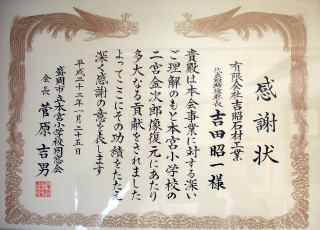 感謝状
有限会社吉昭石材工業
代表取締役社長
吉田昭一様
貴殿は本会事業に対する深い
ご理解のもと本宮小学校の
二宮金次郎像復元にあたり
多大なる貢献をされました
よってここにその功績をたたえ
深く感謝の意を表します
平成二十二年一月二十五日
盛岡市立本宮小学校同窓会
会長 菅原吉男